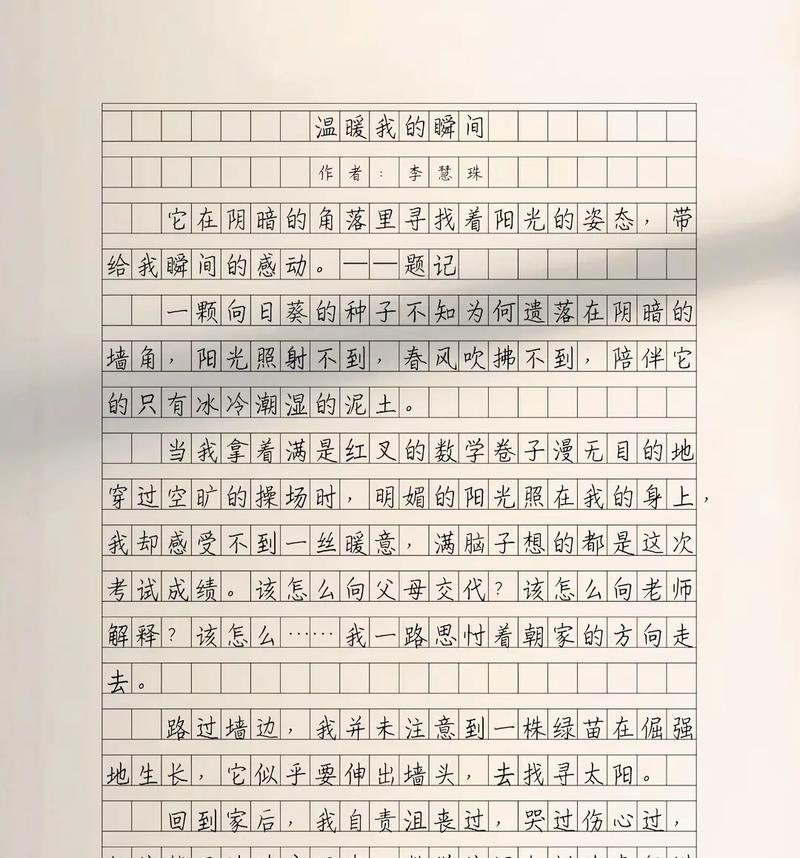 温暖我的瞬间
作者：李慧珠
它在阴暗的角落里寻找着阳光的姿态，带
给我瞬间的感动。——题记
一颗向日葵的种子不知为何遗落在阴暗的
墙角，阳光照射不到，春风吹拂不到，陪伴它
的只有冰冷潮湿的泥土。
当我拿着满是红叉的数学卷子漫无目的地
穿过空旷的操场时，明媚的阳光照在我的身上，
我却感受不到一丝暖意，满脑子想的都是这次
考试成绩。该怎么向父母交代？该怎么向老师
解释？该怎么……我一路思忖着朝家的方向走
去。
路过墙边，我并未注意到一株绿苗在倔强
地生长，它似乎要伸出墙头，去找寻太阳。
回到家后，我自责沮丧过，哭过伤心过，